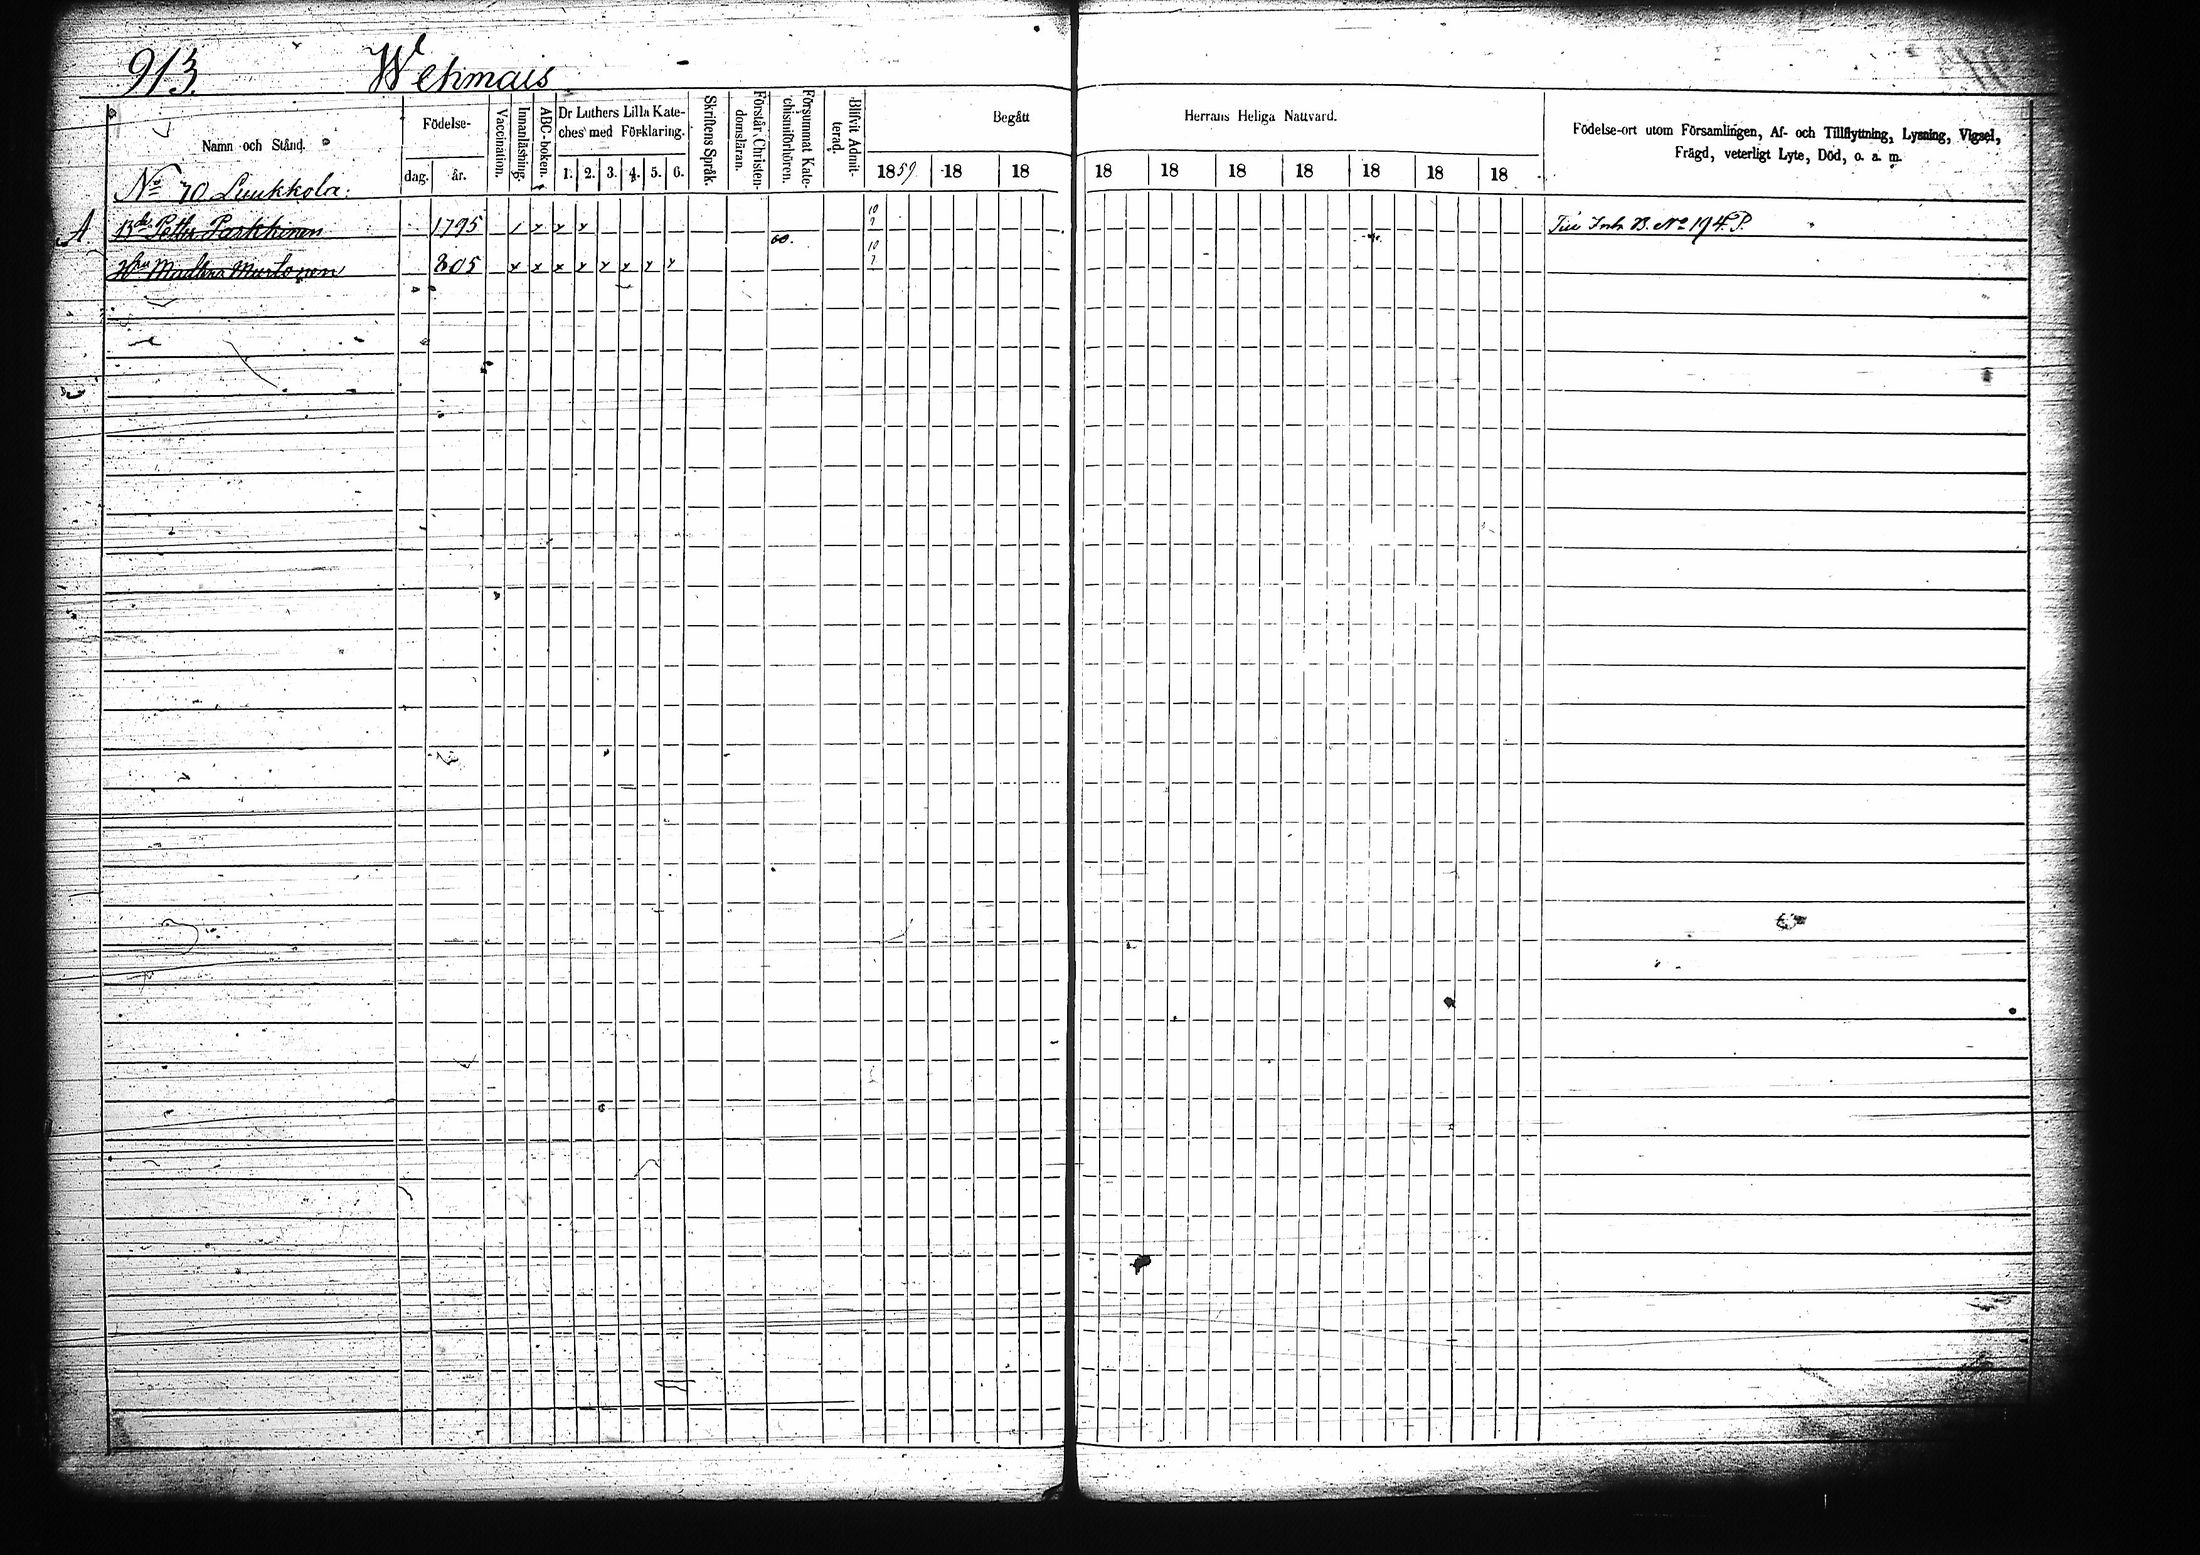 913. Wehmais
Namn och Stånd.
Födelse-
dag. år.
Vaccination.
Innanläsning.
ABC-boken.
Dr Luthers Lilla Kate-
ches med Förklaring.
1. 2. 3. 4. 5. 6.
Skriftens Språk.
Förstår Christen-
domsläran.
Försummat Kate-
chismiförhören.
Blifvit Admit-
terad.
Begått Herrans Heliga Nattvard.
1859 18 18 18 18 18 18 18 18 18
Födelse-ort utom Församlingen, Af- och Tillflyttning, Lysning, Vigsel,
Frägd, veterligt Lyte, Död, o. a. m.
No 70 Luukkola.
A Bd Petter Parkkinen 1795 / x x x 10 7 Inh. B. No 194. P.
60.
Hu Madlena Murtonen 805 x x x x x x x x 10 7